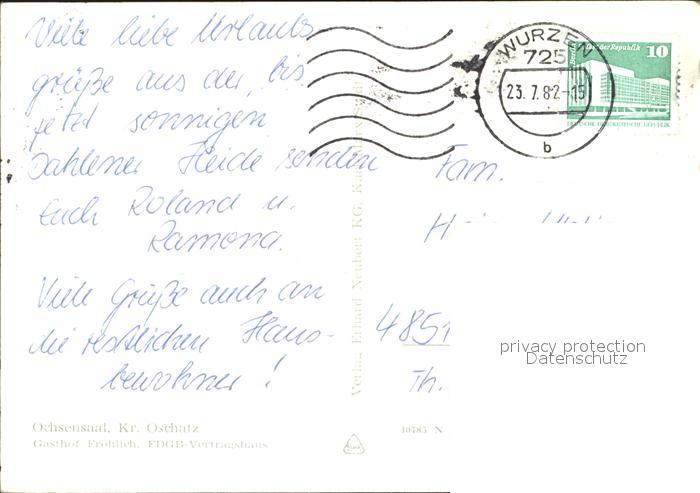 Viele liebe Urlaubs
grüße aus der, bis
jetzt sonnigen
Dahlener Heide senden
Euch Roland u.
Ramona.
Viele Grüße auch an
die restlichen Haus-
bewohner!
Ochsensaal, Kr. Oschatz
Gasthof Fröhlich, FDGB-Vertragshaus
Verlag Erhard Neubert KG,
10785 N
WURZEN
725
23.7.82-15
b
der Republik 10
DEUTSCHE DEMOKRATISCHE REPUBLIK
Fam.
H
4851
Th.
privacy protection
Datenschutz